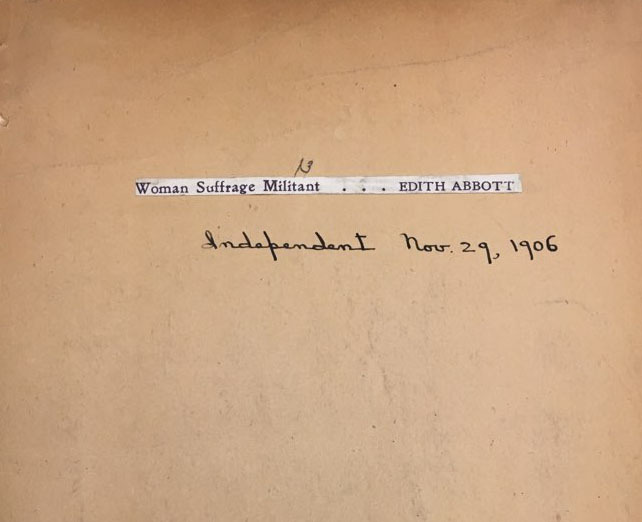 Woman Suffrage Militant . . . EDITH ABBOTT
Independent Nov. 29, 1906